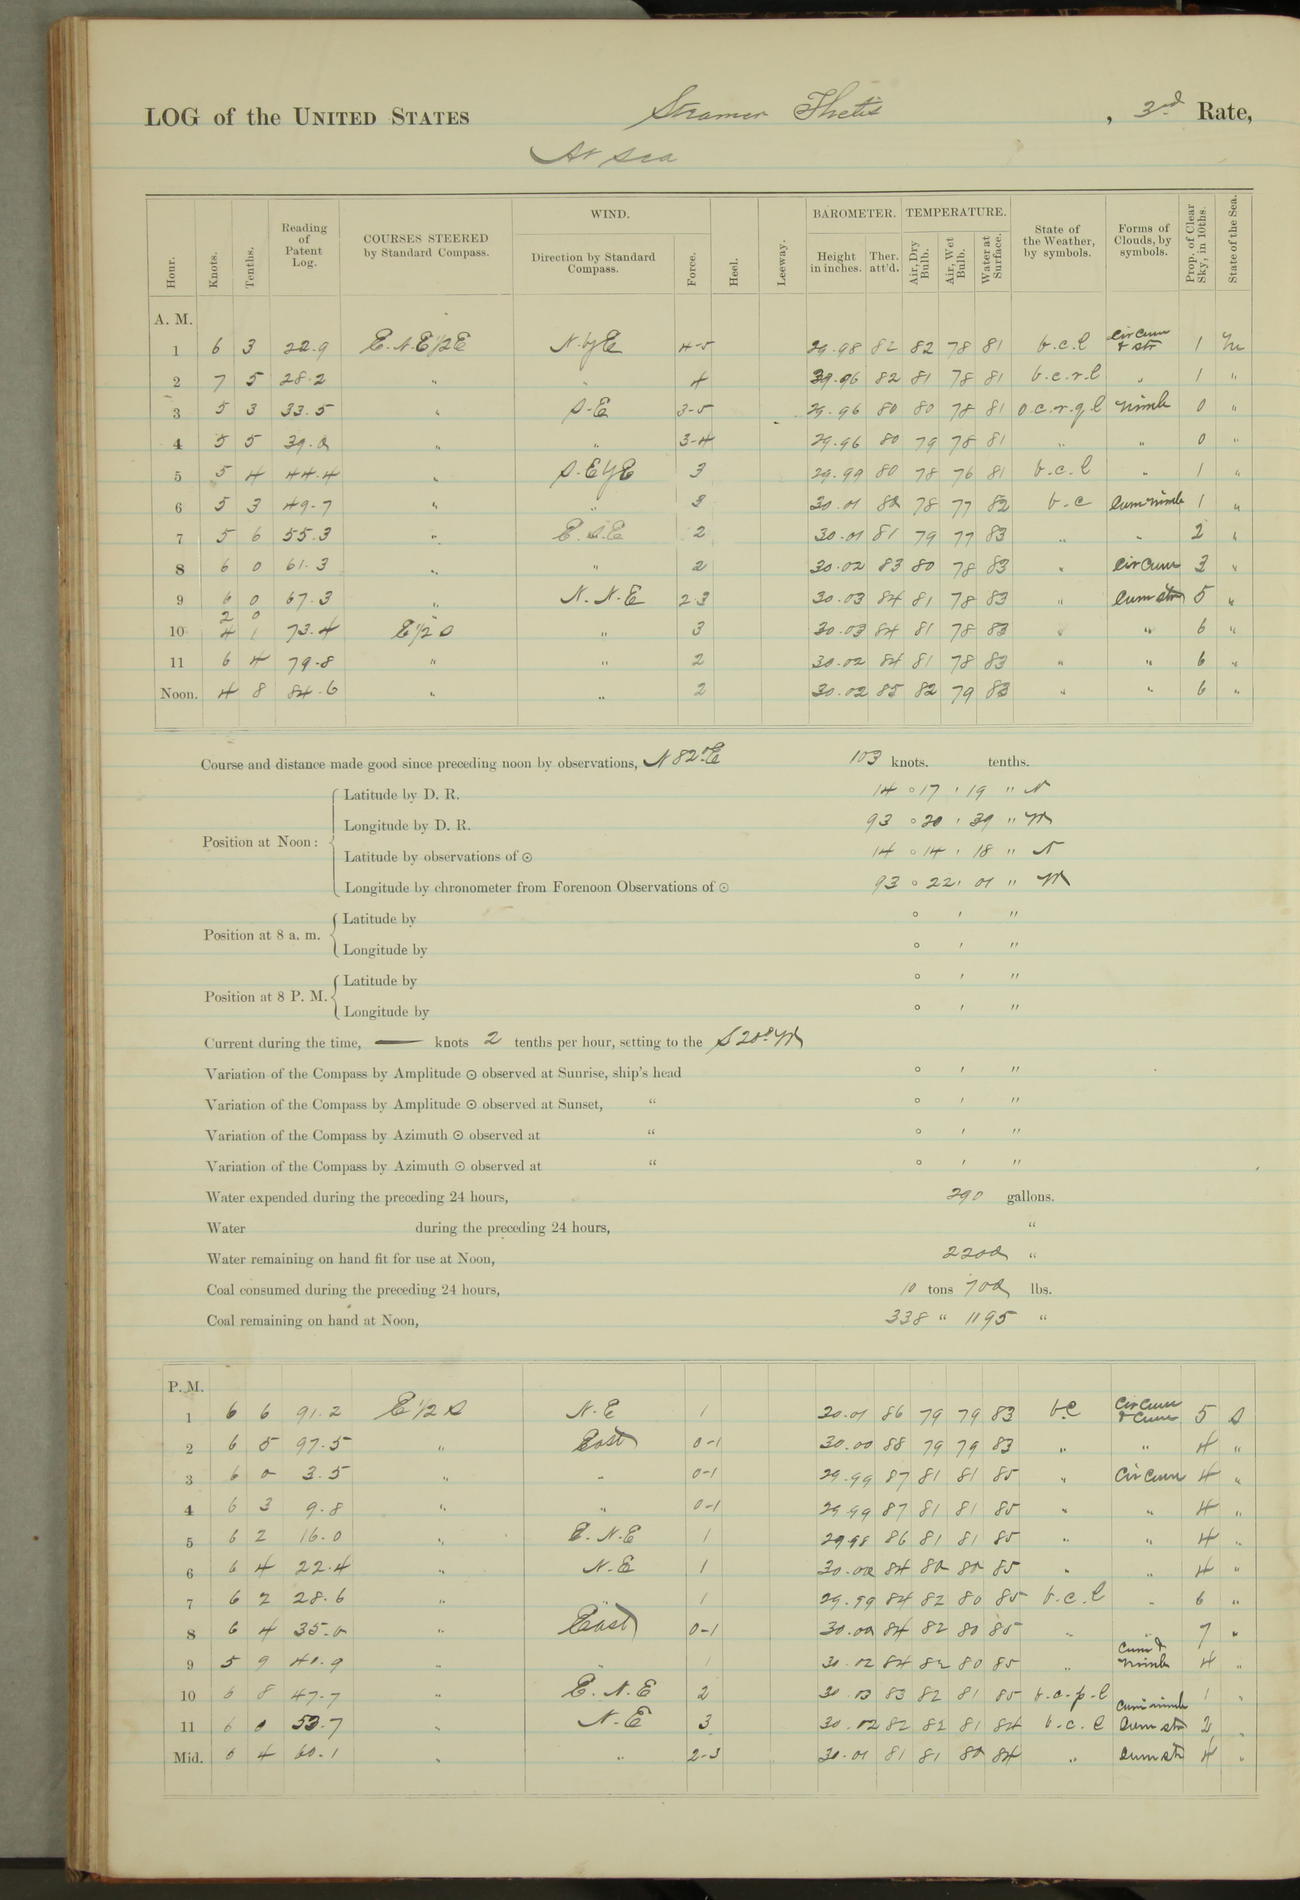 LOG of the UNITED STATES Steamer Thetis, 3rd Rate,
At sea
Hour. Knots. Tenths. Reading of Patent Log. COURSES STEERED by Standard Compass. WIND. Direction by Standard Compass. Force. Heel. Leeway. BAROMETER. Height in inches. Ther. att'd. TEMPERATURE. Air, Dry Bulb. Air, Wet Bulb. Water at Surface. State of the Weather, by symbols. Forms of Clouds, by symbols. Prop. of Clear Sky, in 10ths. State of the Sea.
A. M.
1 6 3 22.9 E.N.E1/2E N.byE 4-5 29.98 82 82 78 81 b.c.l Cir Cum & str 1 M
2 7 5 28.2 " " 4 29.96 82 81 78 81 b.c.r.l " 1 "
3 5 3 33.5 " S.E 3-5 29.96 80 80 78 81 o.c.r.q.l Nimb 0 "
4 5 5 39.0 " " 3-4 29.96 80 79 78 81 " " 0 "
5 5 4 44.4 " S.EyE 3 29.99 80 78 76 81 b.c.l " 1 "
6 5 3 49.7 " " 3 30.01 82 78 77 82 b.c Cum nimb 1 "
7 5 6 55.3 " E.S.E 2 30.01 81 79 77 83 " " 2 "
8 6 0 61.3 " " 2 30.02 83 80 78 83 " Cir Cum 3 "
9 6 0 67.3 " N.N.E 2.3 30.03 84 81 78 83 " Cum str 5 "
2 0
10 4 1 73.4 E1/2S " 3 30.03 84 81 78 83 " " 6 "
11 6 4 79.8 " " 2 30.02 84 81 78 83 " " 6 "
Noon. 4 8 84.6 " " 2 30.02 85 82 79 83 " " 6 "
Course and distance made good since preceding noon by observations, N 82° E 103 knots. tenths.
Position at Noon:
Latitude by D. R. 14 ° 17 ' 19 " N
Longitude by D. R. 93 ° 20 ' 39 " W
Latitude by observations of ☉ 14 ° 14 ' 18 " N
Longitude by chronometer from Forenoon Observations of ☉ 93 ° 22 ' 01 " W
Position at 8 a. m.
Latitude by ° ' "
Longitude by ° ' "
Position at 8 P. M.
Latitude by ° ' "
Longitude by ° ' "
Current during the time, — knots 2 tenths per hour, setting to the S 20° W
Variation of the Compass by Amplitude ☉ observed at Sunrise, ship's head ° ' "
Variation of the Compass by Amplitude ☉ observed at Sunset, " ° ' "
Variation of the Compass by Azimuth ☉ observed at " ° ' "
Variation of the Compass by Azimuth ☉ observed at " ° ' "
Water expended during the preceding 24 hours, 290 gallons.
Water during the preceding 24 hours, "
Water remaining on hand fit for use at Noon, 2200 "
Coal consumed during the preceding 24 hours, 10 tons 700 lbs.
Coal remaining on hand at Noon, 338 " 1195 "
P. M.
1 6 6 91.2 E1/2S N.E 1 30.01 86 79 79 83 b.c Cir Cum & Cum 5 S
2 6 5 97.5 " East 0-1 30.00 88 79 79 83 " " 4 "
3 6 0 3.5 " " 0-1 29.99 87 81 81 85 " Cir Cum 4 "
4 6 3 9.8 " " 0-1 29.99 87 81 81 85 " " 4 "
5 6 2 16.0 " E.N.E 1 29.98 86 81 81 85 " " 4 "
6 6 4 22.4 " N.E 1 30.00 84 80 80 85 " " 4 "
7 6 2 28.6 " " 1 29.99 84 82 80 85 b.c.l " 6 "
8 6 4 35.0 " East 0-1 30.00 84 82 80 85 " " 7 "
9 5 9 40.9 " " 1 30.02 84 82 80 85 " Cum & Nimb 4 "
10 6 8 47.7 " E.N.E 2 30.03 83 82 81 85 b.c.p.l Cum nimb 1 "
11 6 0 53.7 " N.E 3 30.02 82 82 81 84 b.c.l Cum str 2 "
Mid. 6 4 60.1 " " 2-3 30.01 81 81 80 84 " Cum str 4 "